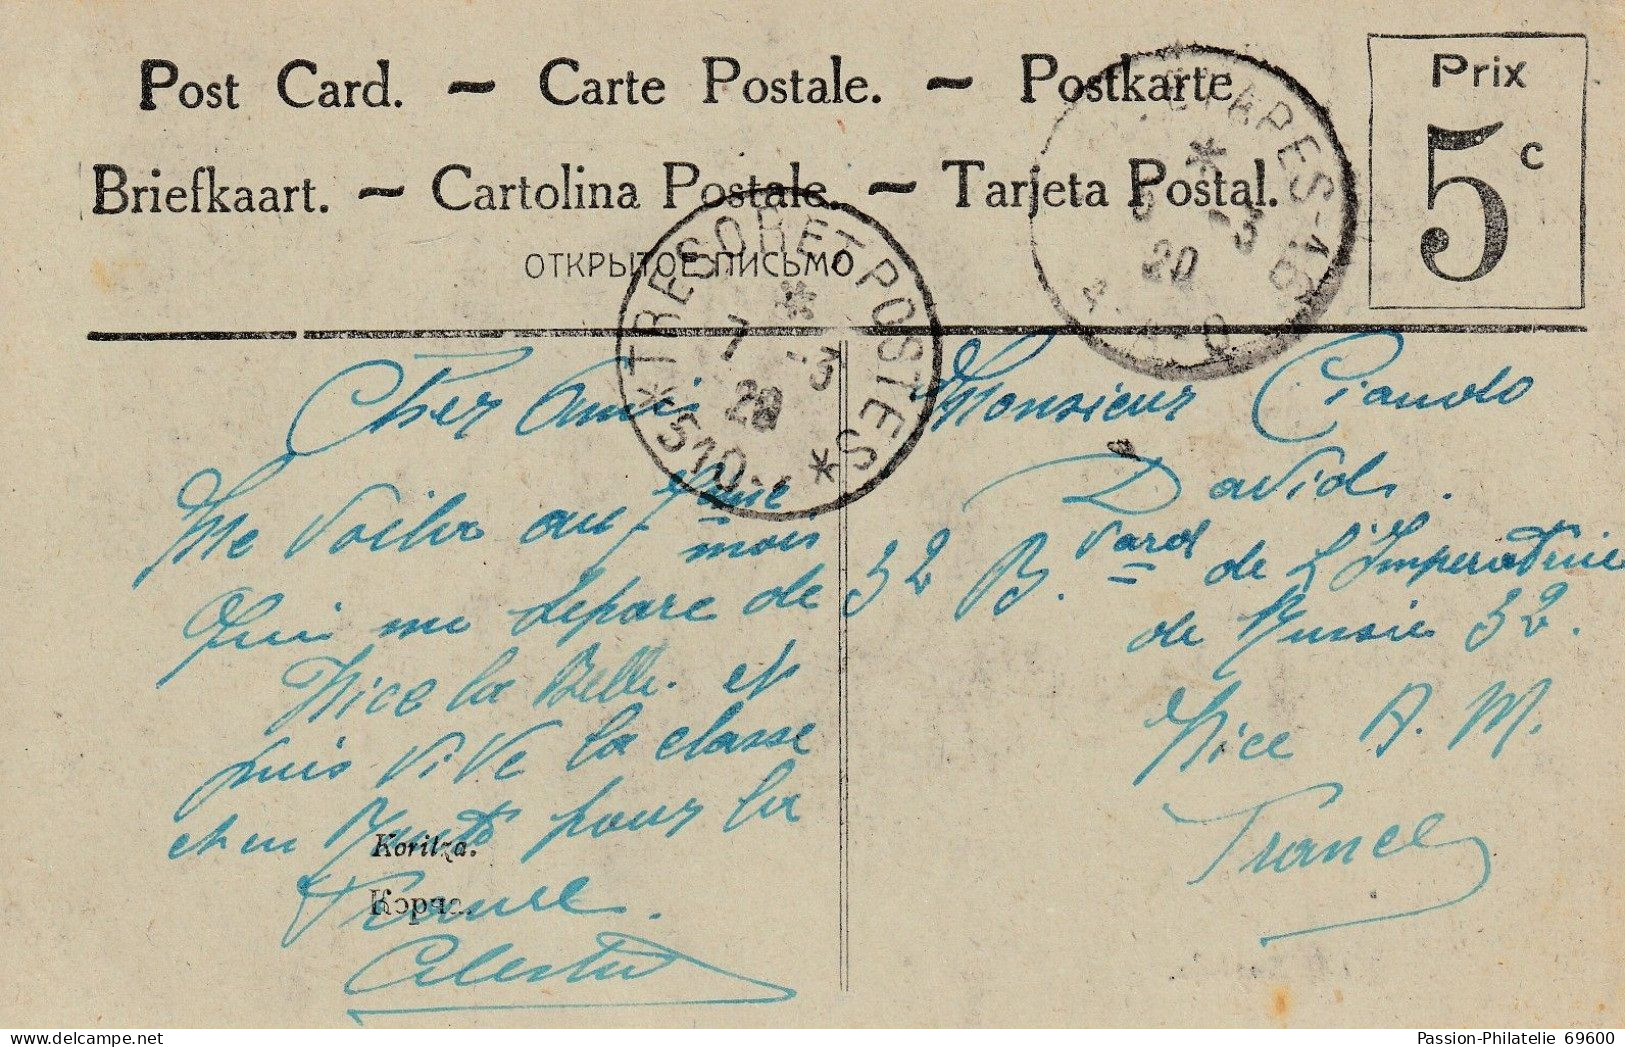 Post Card. ~ Carte Postale. ~ Postkarte
Briefkaart. ~ Cartolina Postale. ~ Tarjeta Postal.
ОТКРЫТОЕ ПИСЬМО
Prix
5c
TRESOR ET POSTES
* 510 *
7 -3
20
ETAPES-16
-3
20
Cher Ami
Me voila au
mois
Qui me separe de
Nice la Belle. et
puis Vive la classe
pour la
France.
Celestin
Koritza.
Корча.
Monsieur Ciaudo
David.
32 B.vard de L'Imperatrice
de Russie 32.
Nice A. M.
France
Passion-Philatelie 69600